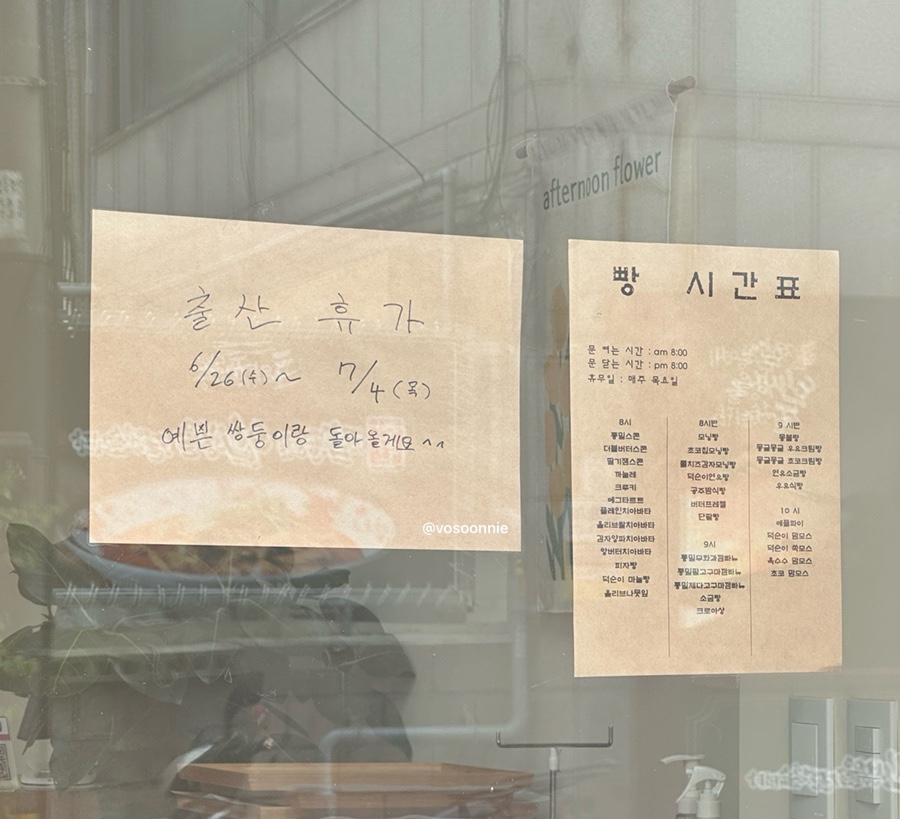 afternoon flower
출산 휴가
6/26(수)~ 7/4(목)
예쁜 쌍둥이랑 돌아올게요^^
@vosoonnie
빵 시간표
문 여는 시간 : am 8:00
문 닫는 시간 : pm 8:00
휴무일 : 매주 목요일
8시
통밀스콘
더블버터스콘
딸기잼스콘
까눌레
크루키
에그타르트
플레인치아바타
올리브촬치아바타
감자양파치아바타
앙버터치아바타
피자빵
덕순이 마늘빵
올리브나뭇잎
8시반
모닝빵
초코칩모닝빵
롤치즈감자모닝빵
덕순이연유빵
공주밤식빵
버터프레첼
단팥빵
9시
통밀무화과깜빠뉴
통밀팥고구마깜빠뉴
통밀체다고구마깜빠뉴
소금빵
크로아상
9 시반
몽블랑
동글동글 우유크림빵
동글동글 초코크림빵
연유소금빵
우유식빵
10 시
애플파이
덕순이 맘모스
덕순이 쑥모스
옥수수 맘모스
초코 맘모스